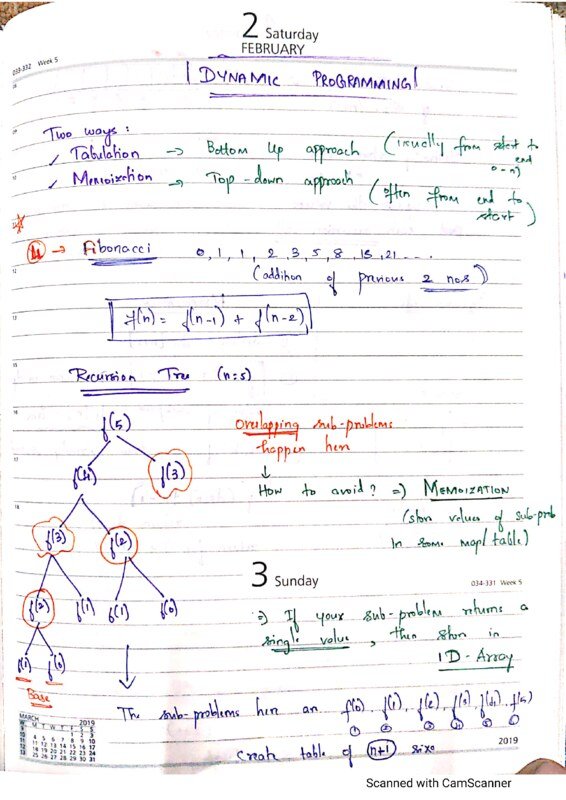 2 Saturday
FEBRUARY
033-332 Week 5
DYNAMIC PROGRAMMING
Two ways :
✓ Tabulation → Bottom Up approach (usually from start to end 0-n)
✓ Memoization → Top-down approach (often from end to start)
→ Fibonacci 0, 1, 1, 2, 3, 5, 8, 13, 21 ...
(addition of previous 2 nos)
f(n) = f(n-1) + f(n-2)
Recursion Tree (n=5)
f(5)
f(4) f(3)
f(3) f(2)
f(2) f(1) f(1) f(0)
f(1) f(0)
Base
Overlapping sub-problems
happen here
↓
How to avoid? => MEMOIZATION
(store values of sub-prob
in some map/table)
3 Sunday
034-331 Week 5
=) If your sub-problem returns a
single value, then store in
1D-Array
The sub-problems here are f(0), f(1), f(2), f(3), f(4), f(5)
create table of (n+1) size
MARCH 2019
W M T W T F S S
2019
Scanned with CamScanner